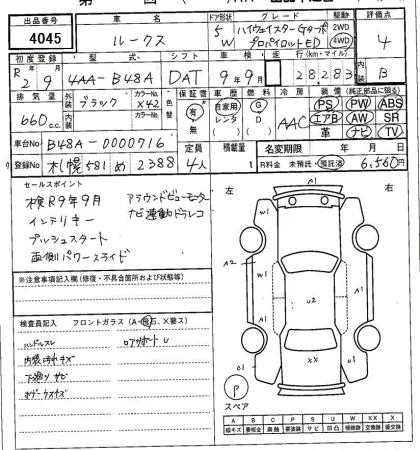 出品番号 車名 ドア形状 グレード 駆動 評価点
4045 ルークス 5 W ハイウェイスターGターボ プロパイロットED 2WD 4WD 4
初度登録 型式 シフト 車検 走行(km・マイル) 内装
R2年9月 4AA-B48A DAT 9年9月 28,283 B
排気量 外装 カラーNo. 色替 保証書 冷房 装備(純正部品に限る)
660c.c. ブラック X42 有 無 自家用 レンタ G D AAC PS PW ABS
エアB AW SR
革 ナビ TV
車台No B48A-0000716 定員 積載量 名変期限 年 月 日
登録No 札幌 581 め 2388 4人 t R料金 未預託 預託済 6,560円
セールスポイント
検R9年9月 アラウンドビューモニター
インテリキー ナビ連動ドラレコ
プッシュスタート
両側パワースライド
※注意事項記入欄(修復・不具合箇所および状態等)
検査員記入 フロントガラス(A・飛石、X要ス)
ハンドルスレ ロアサポートU
内装汚れキズ
下廻りサビ
ボデーウスキズ
左 右
A1
W1 W1
A2
U2
XX
U1
A1
P
スペア
A B C P S U W XX X
線キズ 要板金 腐蝕 要塗装 サビ 凹凸 補修跡 交換跡 要交換